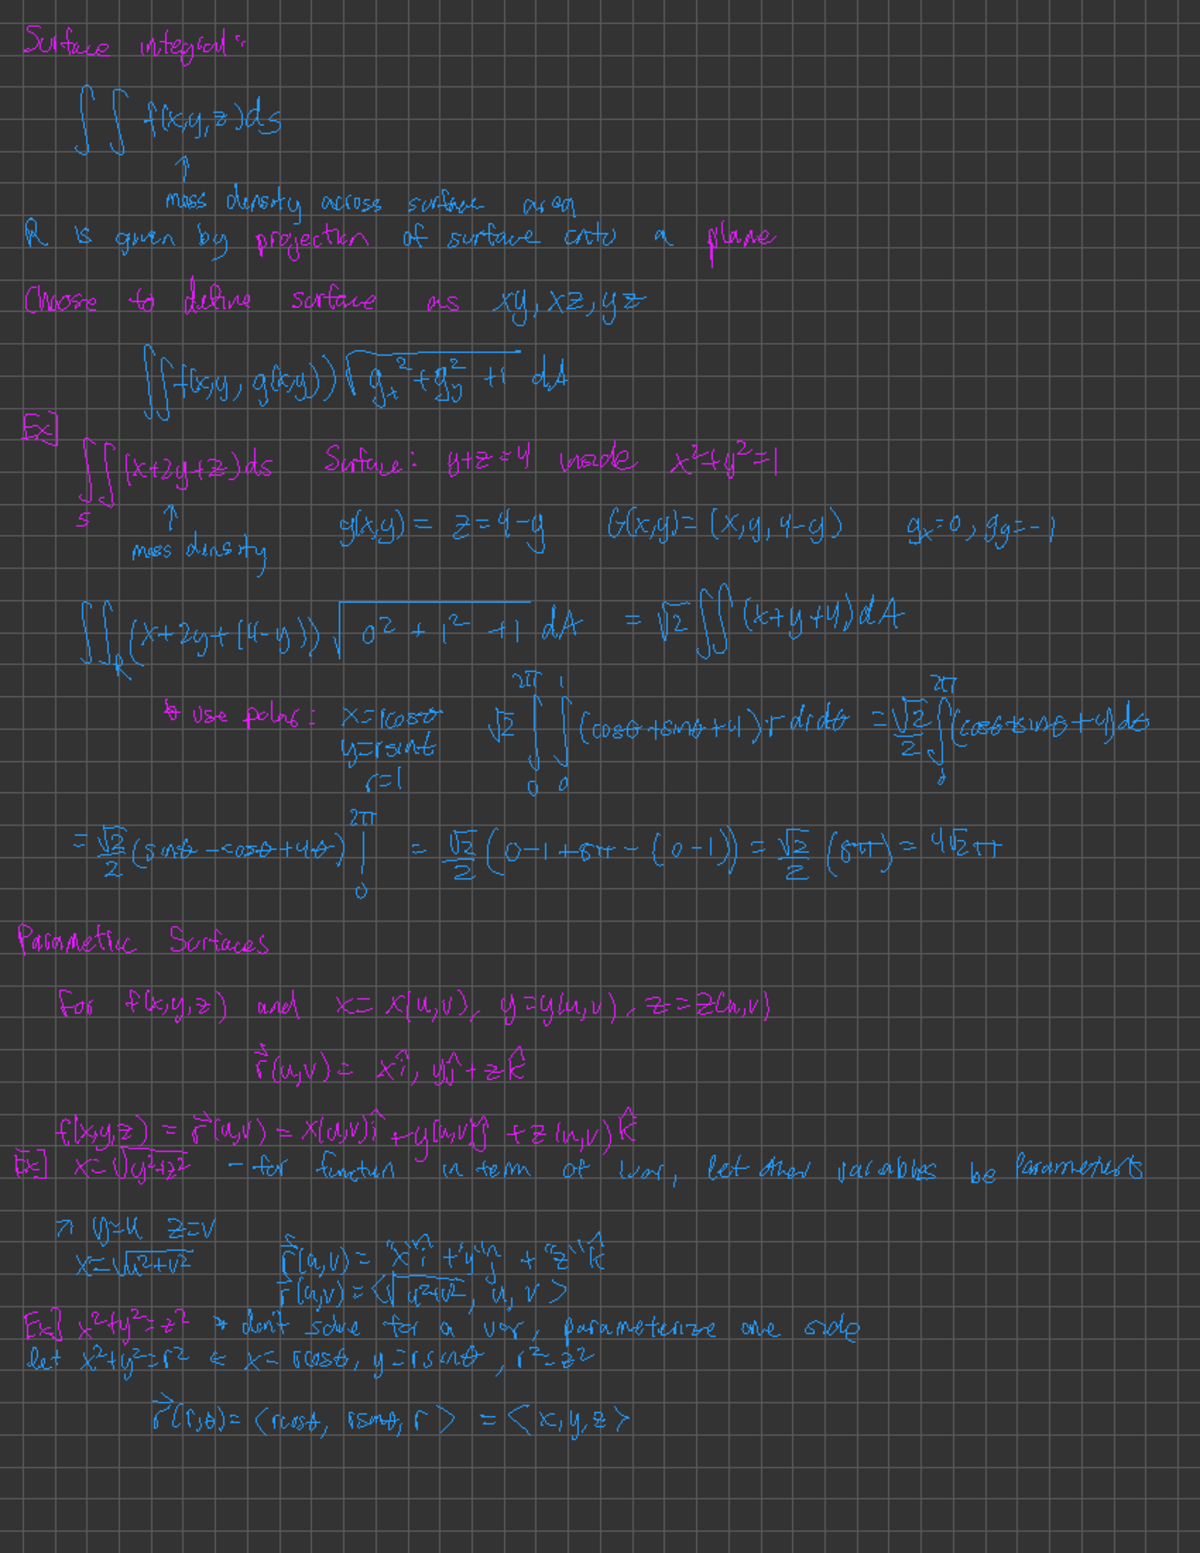 Surface integral:
∫∫ f(x,y,z)ds
↑
mass density across surface area
R is given by projection of surface onto a plane
Choose to define surface as xy, xz, yz
∫∫ f(x,y, g(x,y)) √(gx² + gy² + 1) dA
Ex]
∫∫S (x+2y+z)ds Surface: y+z=4 inside x²+y²=1
↑
mass density
g(x,y) = z=4-y G(x,y)= (x,y,4-y) gx=0, gy=-1
∫∫R (x+2y+(4-y)) √(0² + 1² + 1) dA = √2 ∫∫ (x+y+4)dA
* use polar: x=rcosθ √2 ∫₀^2π ∫₀^1 (cosθ+sinθ+4)·r drdθ = √2/2 ∫₀^2π (cosθ+sinθ+4)dθ
y=rsinθ
r=1
= √2/2 (sinθ-cosθ+4θ) |₀^2π = √2/2 (0-1+8π-(0-1)) = √2/2 (8π) = 4√2π
Parametric Surfaces
For f(x,y,z) and x= x(u,v), y=y(u,v), z=z(u,v)
r⃗(u,v) = xî, yĵ+zk̂
f(x,y,z) = r⃗(u,v) = x(u,v)î + y(u,v)ĵ + z(u,v)k̂
Ex] x=√(y²+z²) - for function in term of 1 var, let other variables be Parameters
↗ y=u z=v
x=√(u²+v²) r⃗(u,v) = "x"î + "y"ĵ + "z"k̂
r⃗(u,v) = <√(u²+v²), u, v>
Ex] x²+y²=z² * don't solve for a var, parameterize one side
let x²+y²=r² & x= rcosθ, y=rsinθ, r²=z²
r⃗(r,θ)= <rcosθ, rsinθ, r> = <x,y,z>